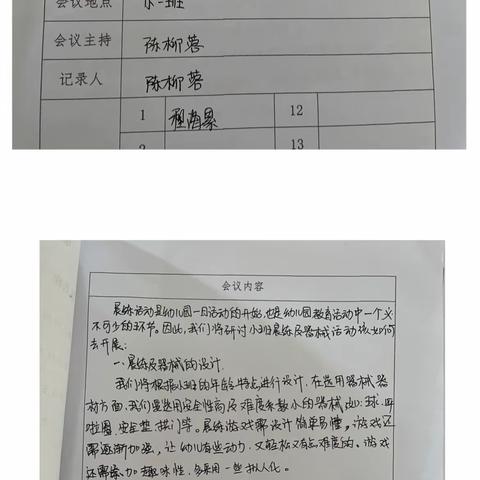 会议地点 小一班
会议主持 陈柳蓉
记录人 陈柳蓉
1 程 12
2 13
会议内容
晨练活动是幼儿园一日活动的开始,也是幼儿园教育活动中一个必
不可少的环节。因此,我们将研讨小班晨练及器械活动该如何
去开展:
一、晨练及器械的设计
我们将根据小班的年龄特点进行设计,在选用器械器
材方面,我们要选用安全性高及难度系数小的器械,如:球、呼
啦圈、安全垫、拱门等。晨练游戏需设计简单易懂,游戏还
需逐渐加强,让幼儿有些动力,又轻松又有点难度的。游戏
还需添加趣味性,多采用一些拟人化。